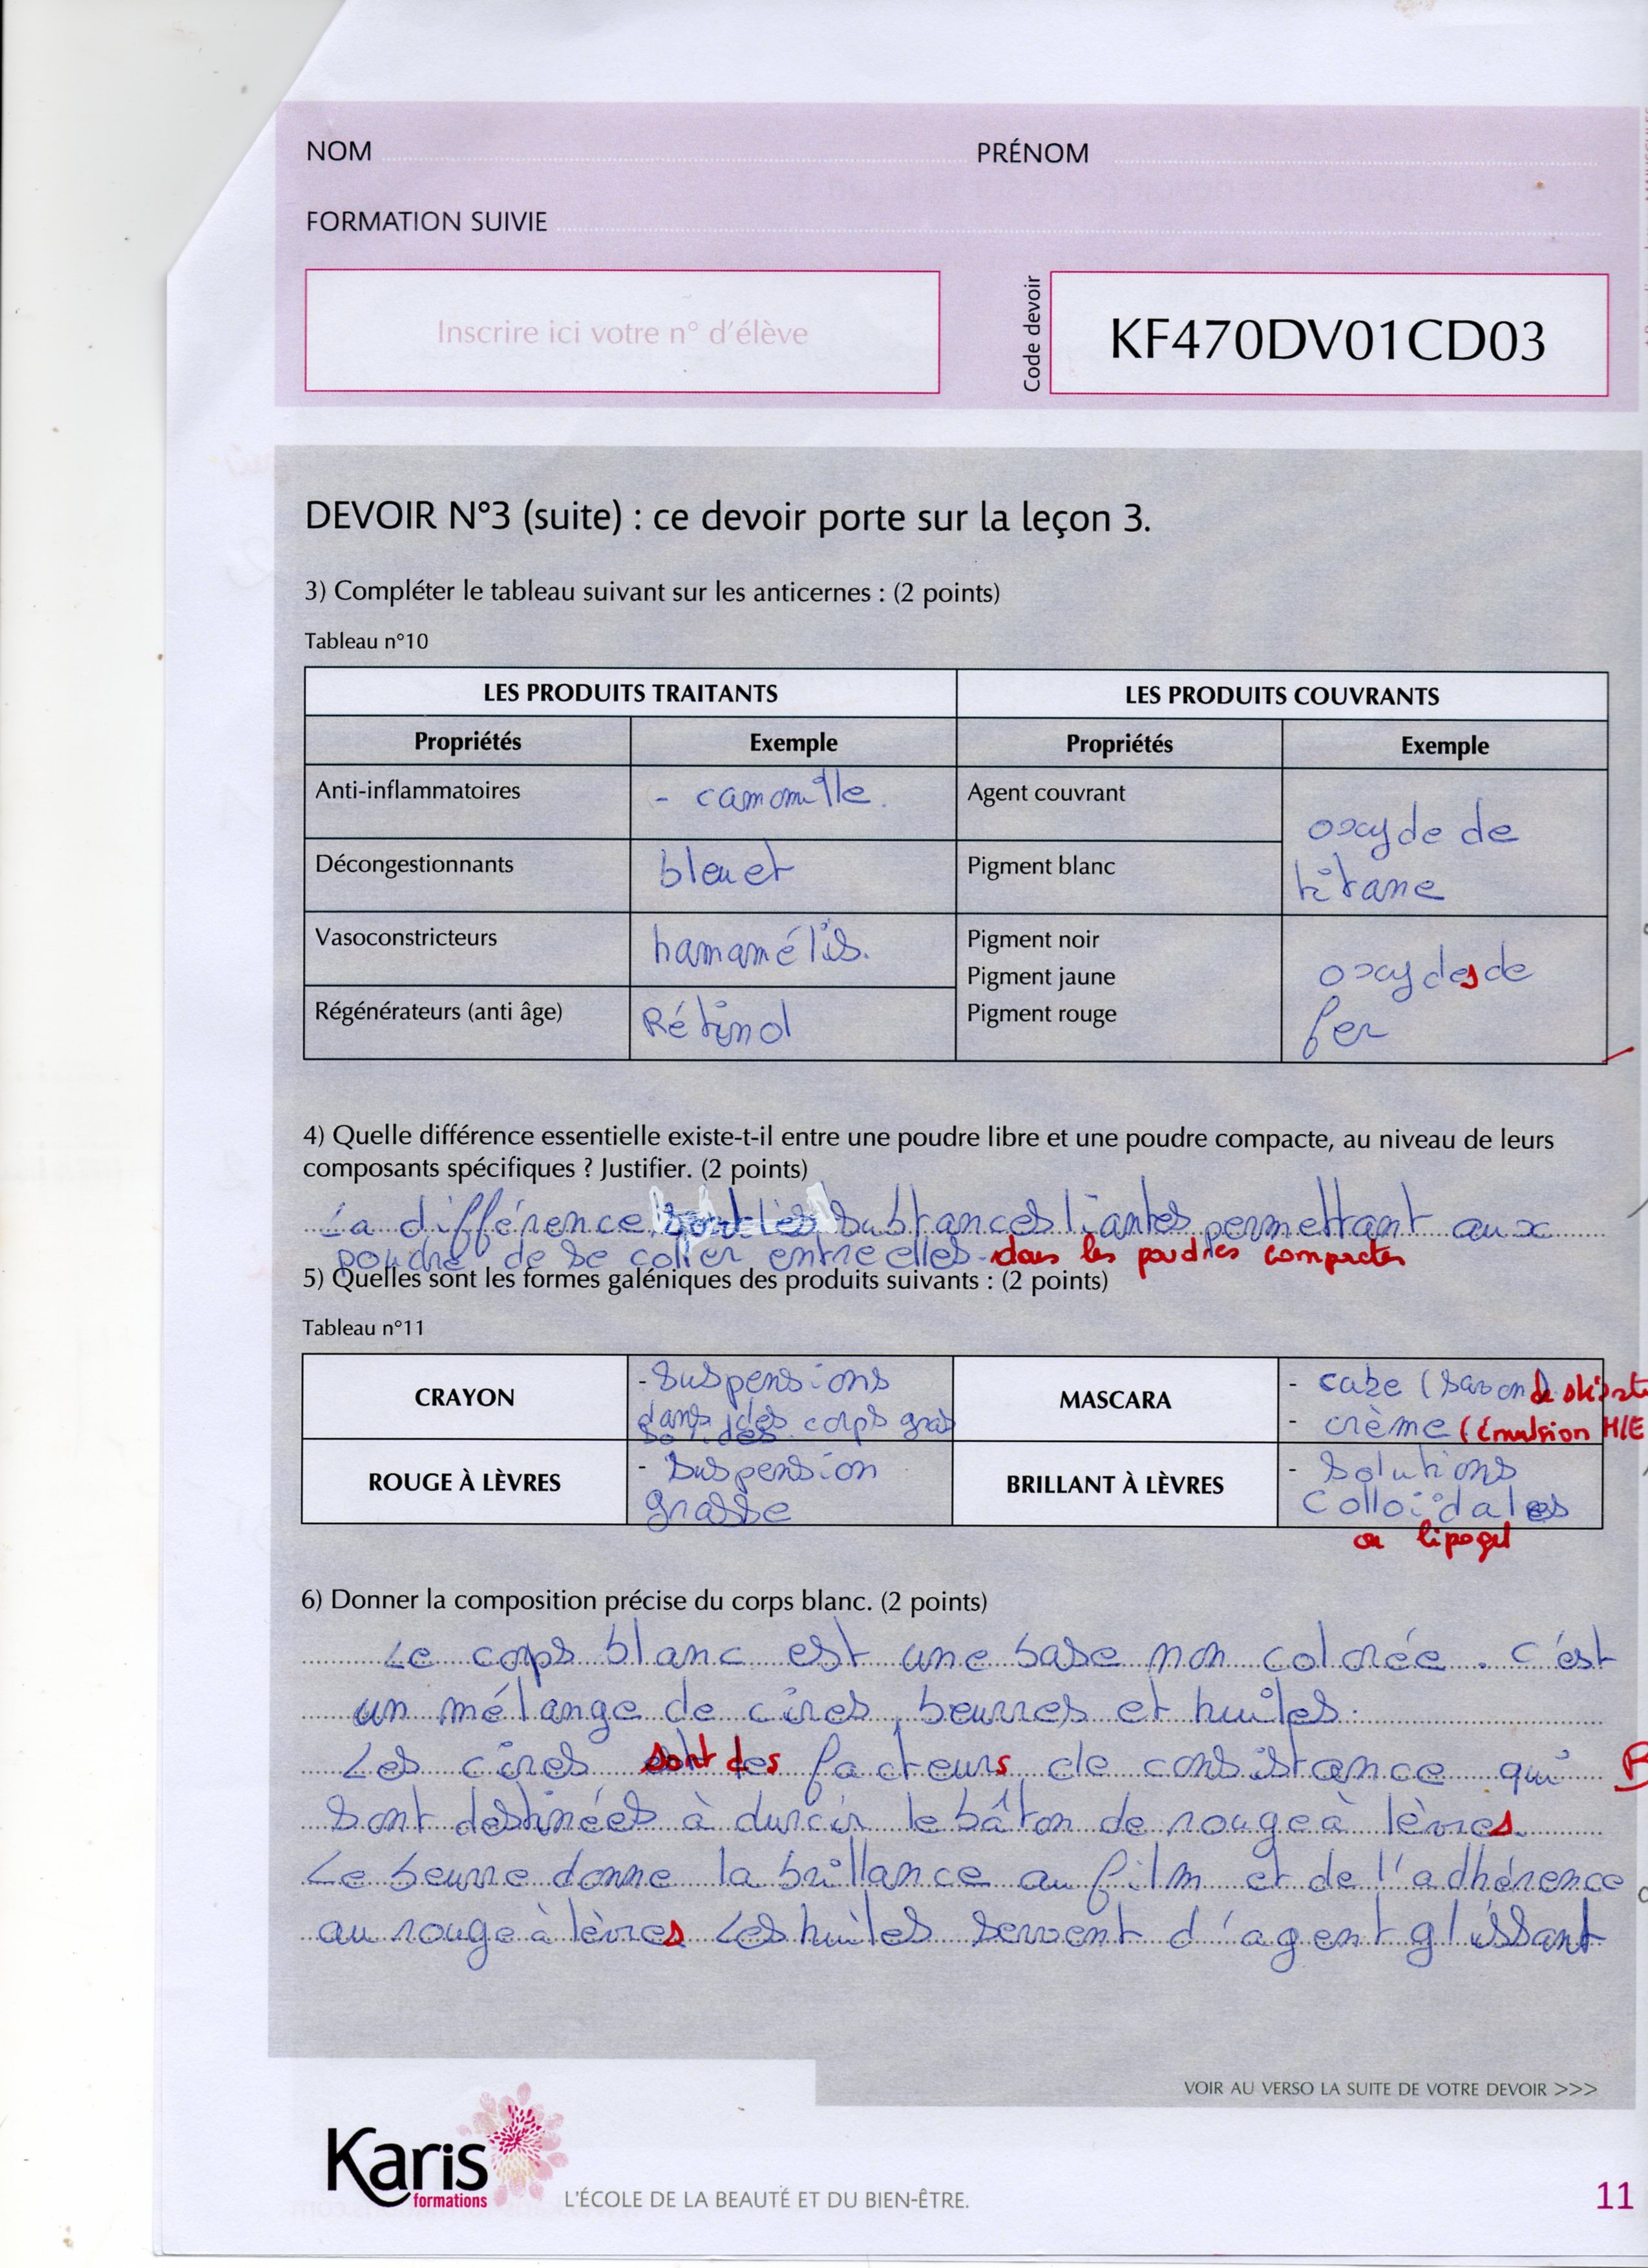 NOM
PRÉNOM
FORMATION SUIVIE
Inscrire ici votre n° d'élève
Code devoir
KF470DV01CD03
DEVOIR N°3 (suite) : ce devoir porte sur la leçon 3.
3) Compléter le tableau suivant sur les anticernes : (2 points)
Tableau n°10
LES PRODUITS TRAITANTS
LES PRODUITS COUVRANTS
Propriétés
Exemple
Propriétés
Exemple
Anti-inflammatoires
- camomille.
Agent couvrant
oxyde de
titane
Décongestionnants
bleuet
Pigment blanc
Vasoconstricteurs
hamamélis.
Pigment noir
Pigment jaune
Pigment rouge
oxydes de
fer
Régénérateurs (anti âge)
Rétinol
4) Quelle différence essentielle existe-t-il entre une poudre libre et une poudre compacte, au niveau de leurs
composants spécifiques ? Justifier. (2 points)
La différence sont les substances liantes permettant aux
poudre de se coller entre elles. dans les poudres compactes
5) Quelles sont les formes galéniques des produits suivants : (2 points)
Tableau n°11
CRAYON
- Suspensions
dans des corps gras
MASCARA
- cake (savon de
- crème (Emulsion H/E
ROUGE À LÈVRES
- Suspension
grasse
BRILLANT À LÈVRES
- Solutions
colloïdales
ou lipogel
6) Donner la composition précise du corps blanc. (2 points)
Le corps blanc est une base non colorée. c'est
un mélange de cires, beurres et huiles.
Les cires sont des facteurs de consistance qui B
sont destinées à durcir le bâton de rouge à lèvres
Le beurre donne la brillance au film et de l'adhérence
au rouge à lèvres Les huiles servent d'agent glissant
VOIR AU VERSO LA SUITE DE VOTRE DEVOIR >>>
Karis
formations
L'ÉCOLE DE LA BEAUTÉ ET DU BIEN-ÊTRE.
11